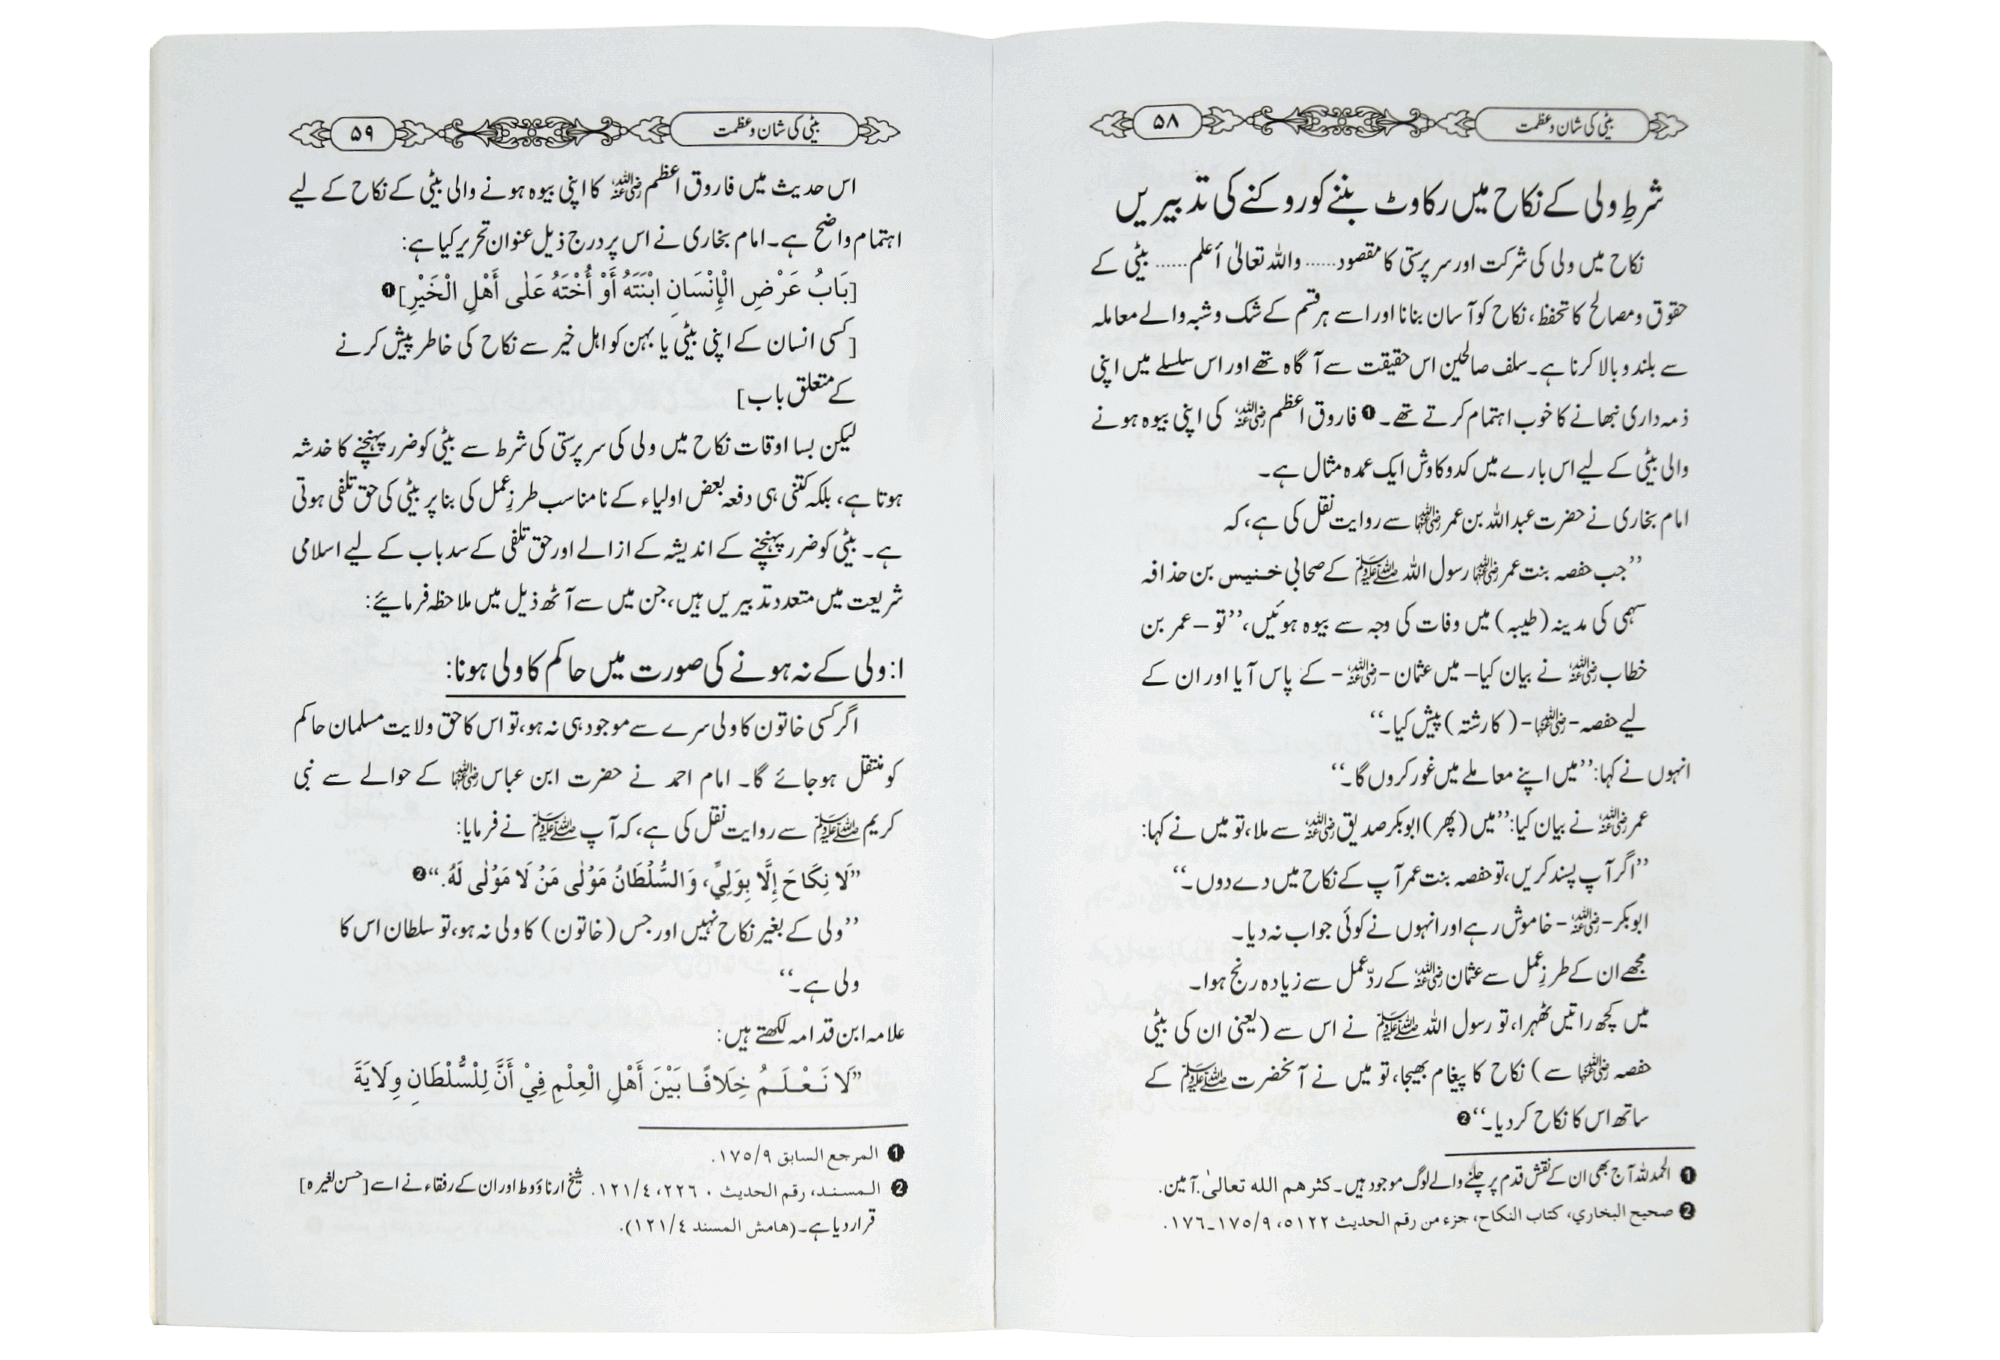 بیٹی کی شان و عظمت
۵۸
شرطِ ولی کے نکاح میں رکاوٹ بننے کو روکنے کی تدبیریں
نکاح میں ولی کی شرکت اور سرپرستی کا مقصود...... واللہ تعالیٰ أعلم...... بیٹی کے
حقوق و مصالح کا تحفظ، نکاح کو آسان بنانا اور اسے ہر قسم کے شک و شبہ والے معاملہ
سے بلند و بالا کرنا ہے۔ سلف صالحین اس حقیقت سے آگاہ تھے اور اس سلسلے میں اپنی
ذمہ داری نبھانے کا خوب اہتمام کرتے تھے۔❶ فاروق اعظم رضی اللہ عنہ کی اپنی بیوہ ہونے
والی بیٹی کے لیے اس بارے میں کد و کاوش ایک عمدہ مثال ہے۔
امام بخاری نے حضرت عبد اللہ بن عمر رضی اللہ عنہما سے روایت نقل کی ہے، کہ
’’جب حفصہ بنت عمر رضی اللہ عنہما رسول اللہ ﷺ کے صحابی خنیس بن حذافہ
سہمی کی مدینہ (طیبہ) میں وفات کی وجہ سے بیوہ ہوئیں،’’تو – عمر بن
خطاب رضی اللہ عنہ نے بیان کیا– میں عثمان -رضی اللہ عنہ- کے پاس آیا اور ان کے
لیے حفصہ-رضی اللہ عنہا- (کا رشتہ) پیش کیا۔‘‘
انہوں نے کہا:’’میں اپنے معاملے میں غور کروں گا۔‘‘
عمر رضی اللہ عنہ نے بیان کیا:’’میں (پھر) ابوبکر صدیق رضی اللہ عنہ سے ملا، تو میں نے کہا:
’’اگر آپ پسند کریں، تو حفصہ بنت عمر آپ کے نکاح میں دے دوں۔‘‘
ابوبکر-رضی اللہ عنہ- خاموش رہے اور انہوں نے کوئی جواب نہ دیا۔
مجھے ان کے طرزِ عمل سے عثمان رضی اللہ عنہ کے ردّ عمل سے زیادہ رنج ہوا۔
میں کچھ راتیں ٹھہرا، تو رسول اللہ ﷺ نے اس سے (یعنی ان کی بیٹی
حفصہ رضی اللہ عنہا سے) نکاح کا پیغام بھیجا، تو میں نے آنحضرت ﷺ کے
ساتھ اس کا نکاح کر دیا۔‘‘❷
❶ الحمد للہ آج بھی ان کے نقش قدم پر چلنے والے لوگ موجود ہیں۔ کثرهم الله تعالیٰ. آمین.
❷ صحیح البخاري، کتاب النکاح، جزء من رقم الحدیث ۵۱۲۲، ۹/۱۷۵۔۱۷۶.
بیٹی کی شان و عظمت
۵۹
اس حدیث میں فاروق اعظم رضی اللہ عنہ کا اپنی بیوہ ہونے والی بیٹی کے نکاح کے لیے
اہتمام واضح ہے۔ امام بخاری نے اس پر درج ذیل عنوان تحریر کیا ہے:
[بَابُ عَرْضِ الْإِنْسَانِ ابْنَتَهُ أَوْ أُخْتَهُ عَلٰی أَهْلِ الْخَیْرِ]❶
[کسی انسان کے اپنی بیٹی یا بہن کو اہل خیر سے نکاح کی خاطر پیش کرنے
کے متعلق باب]
لیکن بسا اوقات نکاح میں ولی کی سرپرستی کی شرط سے بیٹی کو ضرر پہنچنے کا خدشہ
ہوتا ہے، بلکہ کتنی ہی دفعہ بعض اولیاء کے نامناسب طرزِ عمل کی بنا پر بیٹی کی حق تلفی ہوتی
ہے۔ بیٹی کو ضرر پہنچنے کے اندیشہ کے ازالے اور حق تلفی کے سدباب کے لیے اسلامی
شریعت میں متعدد تدبیریں ہیں، جن میں سے آٹھ ذیل میں ملاحظہ فرمائیے:
۱: ولی کے نہ ہونے کی صورت میں حاکم کا ولی ہونا:
اگر کسی خاتون کا ولی سرے سے موجود ہی نہ ہو، تو اس کا حق ولایت مسلمان حاکم
کو منتقل ہوجائے گا۔ امام احمد نے حضرت ابن عباس رضی اللہ عنہما کے حوالے سے نبی
کریم ﷺ سے روایت نقل کی ہے، کہ آپ ﷺ نے فرمایا:
’’لَا نِکَاحَ إِلَّا بِوَلِيٍّ، وَالسُّلْطَانُ مَوْلٰی مَنْ لَا مَوْلٰی لَهُ.‘‘❷
’’ولی کے بغیر نکاح نہیں اور جس (خاتون) کا ولی نہ ہو، تو سلطان اس کا
ولی ہے۔‘‘
علامہ ابن قدامہ لکھتے ہیں:
’’لَا نَعْلَمُ خِلَافًا بَیْنَ أَهْلِ الْعِلْمِ فِيْ أَنَّ لِلْسُّلْطَانِ وِلَایَةَ
❶ المرجع السابق ۹/۱۷۵.
❷ المسند، رقم الحدیث ۲۲۶۰، ۴/۱۲۱. شیخ ارناؤوط اور ان کے رفقاء نے اسے [حسن لغیرہ]
قرار دیا ہے۔ (هامش المسند ۴/۱۲۱).